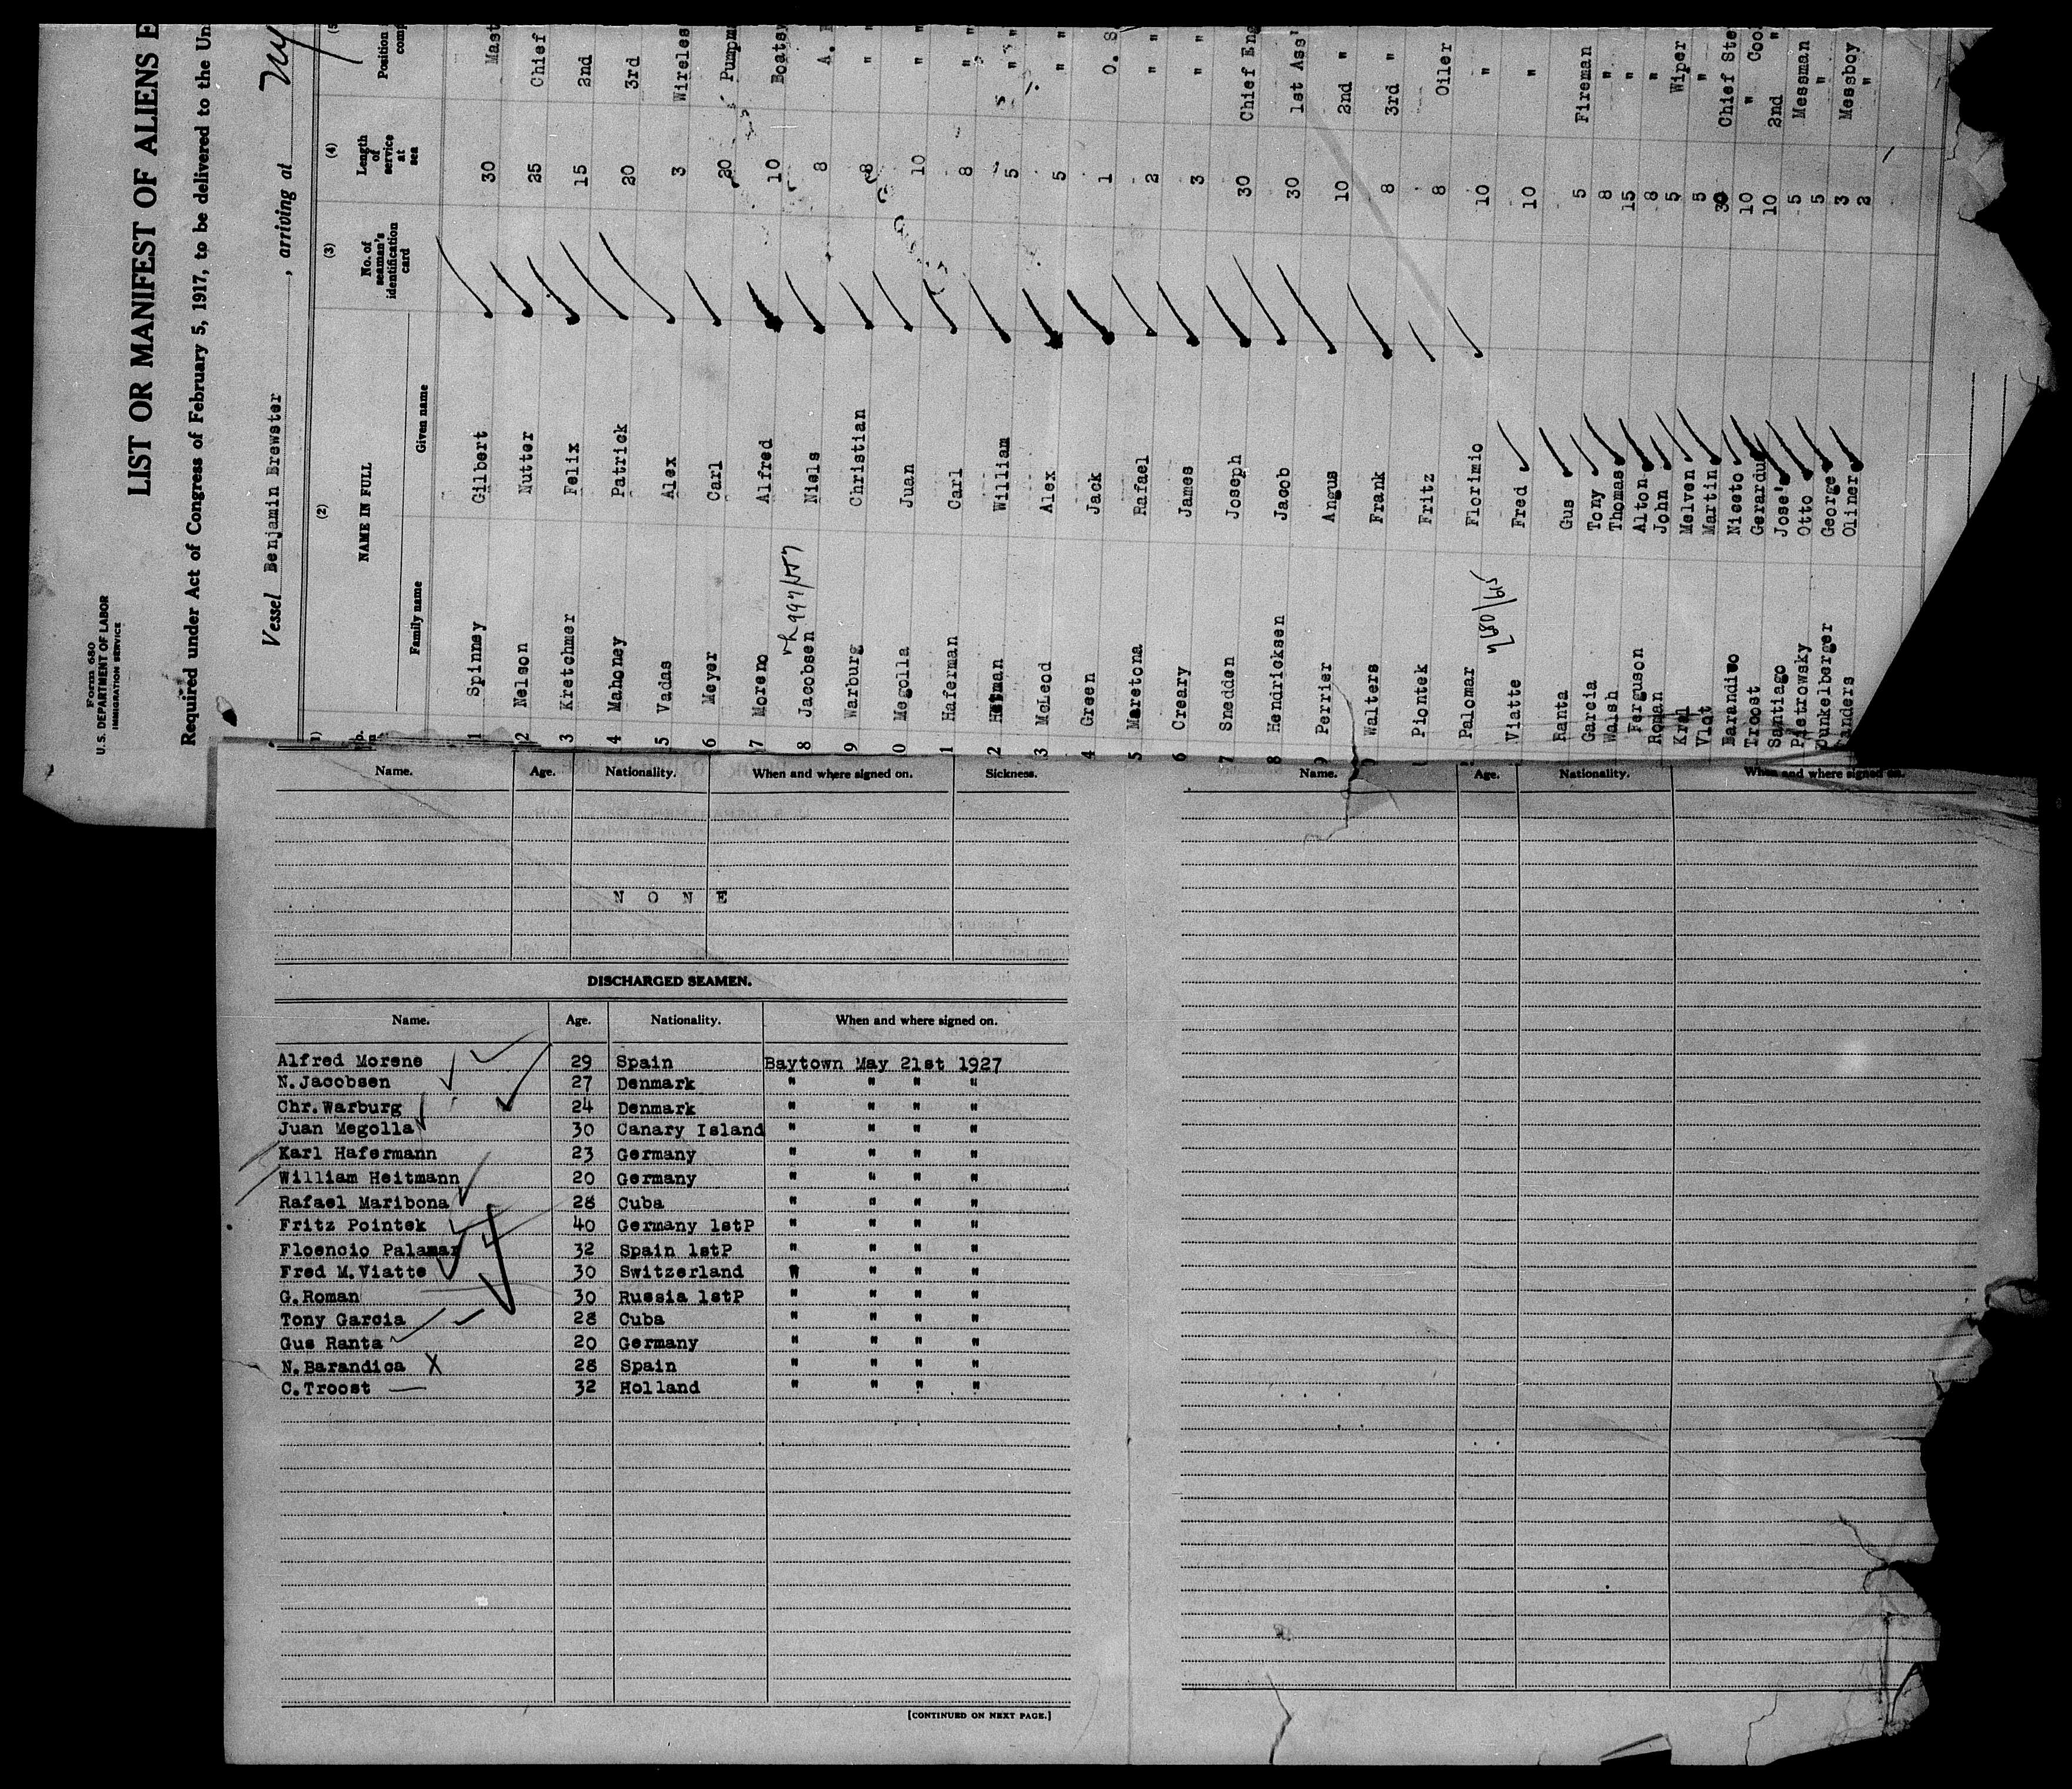 Form 680
U.S. DEPARTMENT OF LABOR
IMMIGRATION SERVICE
LIST OR MANIFEST OF ALIENS E
Required under Act of Congress of February 5, 1917, to be delivered to the Un
Vessel Benjamin Brewster, arriving at
(2) (3) (4)
NAME IN FULL No. of seaman's identification card Length of service at sea Position comp
Family name Given name
1 Spinney Gilbert 30 Mast
2 Nelson Nutter 25 Chief
3 Kretchmer Felix 15 2nd
4 Mahoney Patrick 20 3rd
5 Vadas Alex 3 Wireles
6 Meyer Carl 20 Pumpm
7 Moreno Alfred 10 Boats
8 Jacobsen Niels 8 A.
9 Warburg Christian 8 "
0 Megolla Juan 10 "
1 Haferman Carl 8 "
2 Hetman William 5 "
3 McLeod Alex 5 "
4 Green Jack 1 O. S
5 Maretona Rafael 2 "
6 Creary James 3 "
7 Snedden Joseph 30 Chief Eng
8 Hendricksen Jacob 30 1st Ass'
9 Perrier Angus 10 2nd "
Walters Frank 8 3rd "
Piontek Fritz 8 Oiler
Palomar Florimio 10 "
Viatte Fred 10 "
Ranta Gus 5 Fireman
Garcia Tony 8 "
Walsh Thomas 15 "
Ferguson Alton 8 "
Roman John 5 Wiper
Kral Melven 5 "
Vlot Martin 30 Chief Ste
Barandico Niceto 10 " Coo
Troost Gerardu 10 2nd "
Santiago Jose' 5 Messman
Pietrowsky Otto 5 "
Dunkelberger George 3 Messboy
anders Oliner 2 "
Name. Age. Nationality. When and where signed on. Sickness.
NONE
DISCHARGED SEAMEN.
Name. Age. Nationality. When and where signed on.
Alfred Morene 29 Spain Baytown May 21st 1927
N.Jacobsen 27 Denmark " " " "
Chr.Warburg 24 Denmark " " " "
Juan Megolla 30 Canary Island " " " "
Karl Hafermann 23 Germany " " " "
William Heitmann 20 Germany " " " "
Rafael Maribona 28 Cuba " " " "
Fritz Pointek 40 Germany 1stP " " " "
Floencio Palamar 32 Spain 1stP " " " "
Fred M.Viatte 30 Switzerland " " " "
G.Roman 30 Russia 1stP " " " "
Tony Garcia 28 Cuba " " " "
Gus Ranta 20 Germany " " " "
N.Barandica X 28 Spain " " " "
C.Troost 32 Holland " " " "
[CONTINUED ON NEXT PAGE.]
Name. Age. Nationality. When and where signed on.